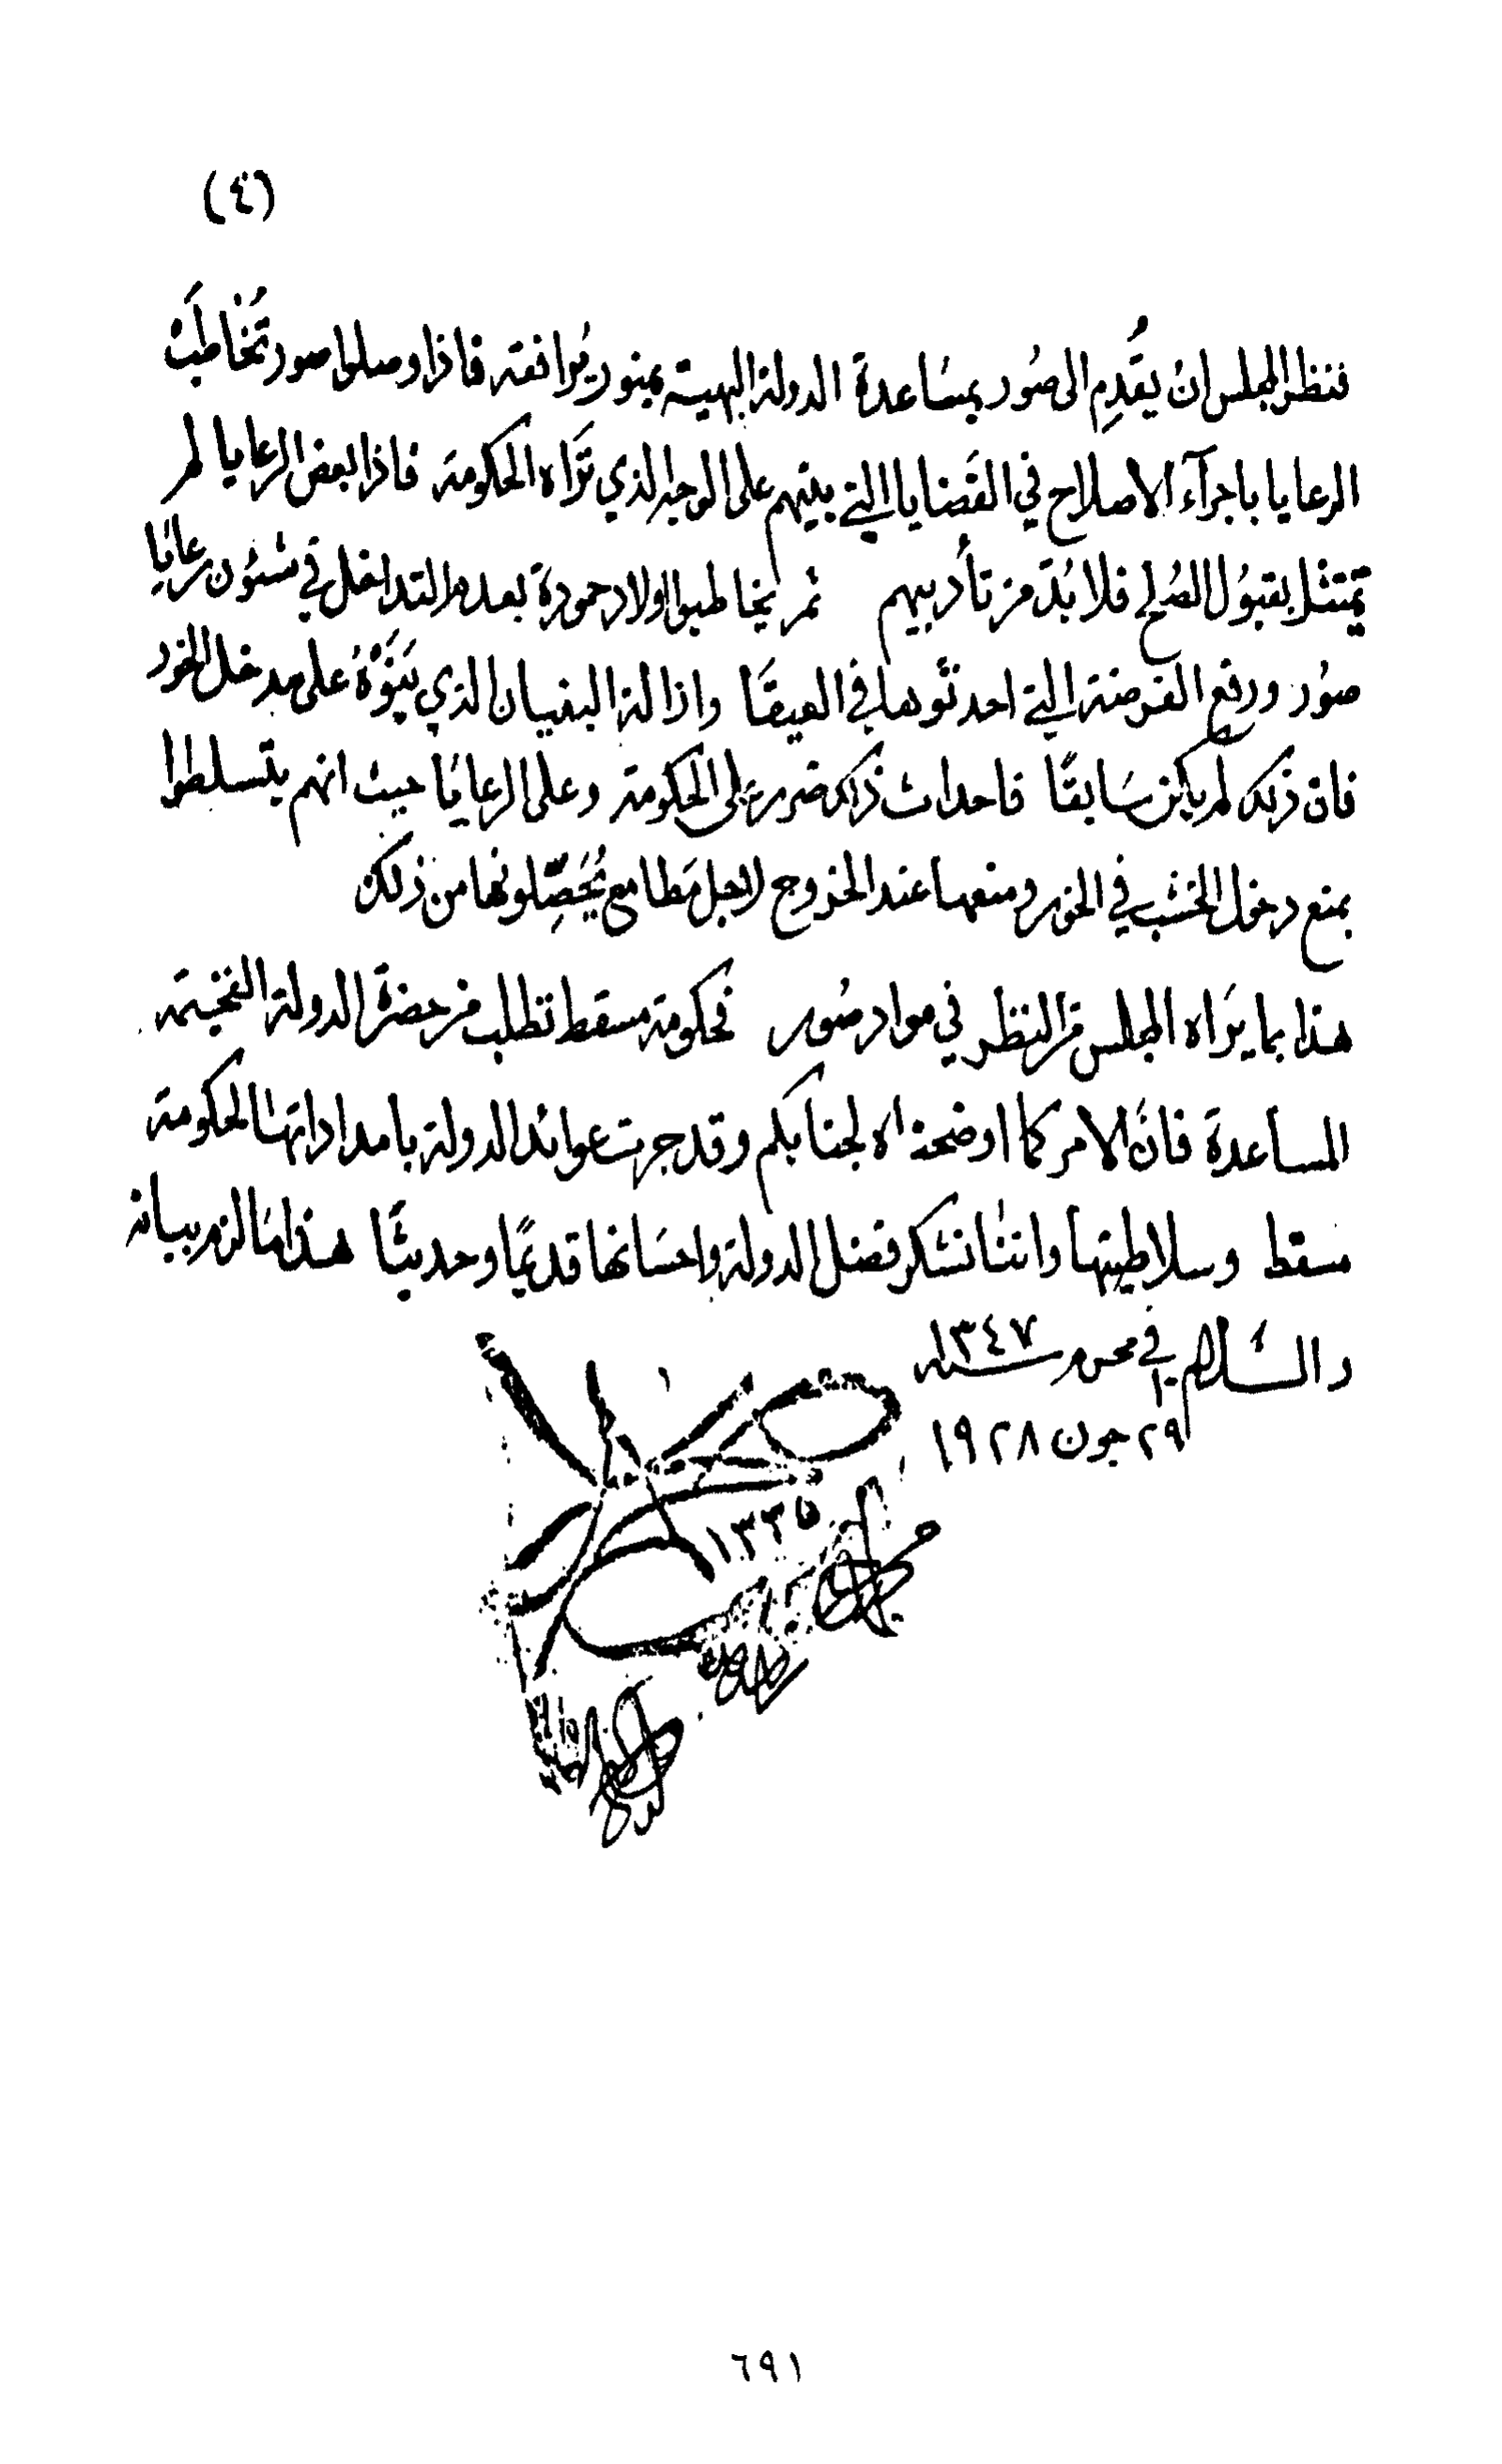 (٤)
فنظر المجلس ان يقدم الى صُور بمسَاعدة الدولة البهية بمنور يُوافقه فاذا وصلوا صور تُخَاطَبُ
الرعايا باجرآء الاصلاح في القَضايا التي بينهم على الوجه الذي تَرَاه الحكومة فاذا بعض الرعايا لم
يمتثل بقبُول الصُلح فلا بُدّ من تأديبهم ثم يخاطبوا اولاد حمودة بعدم التداخل في شئون رعايَا
صُور ورفع الفرضة التي احدثوها في العيقَا وازالة البنيان الذي بَنَوْهُ على مدخل الخور
فان ذلك لم يكن سَابقًا فاحداث ذلك ضرر على الحكومة وعلى الرعايَا حيث انهم يتسلطوا
بمنع دخل الخشب في الخور ومنعها عند الخروج لاجل مَطامع يُحَصِّلونها من ذلك
هذا بما يَرَاه المجلس من النظر في مواد صُور فحكومة مسقط تطلب من حضرة الدولة الفخيمة
المساعدة فانّ الامر كما اوضحناه لجنابكم وقد جرت عوائد الدولة بامداداتها لحكومة
مسقط وسلاطينها واننا نشكر فضل الدولة واحسَانها قديمًا وحديثًا هذا مَا لزم بيانه
والسَّلام في ١٠ محرم سنة ١٣٤٧
٢٩ جون ١٩٢٨
١٣٣٥
٦٩١